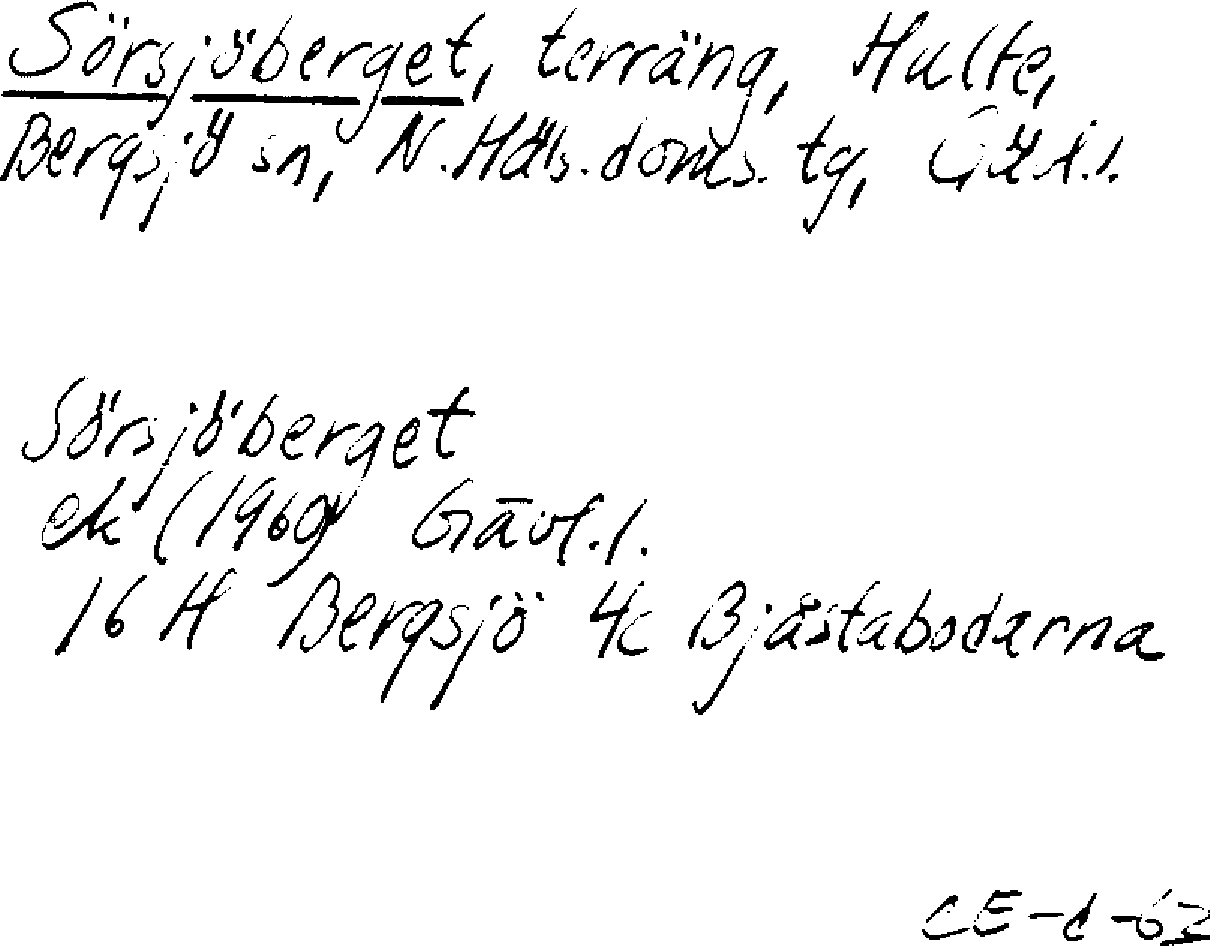 Sörsjöberget, terräng, Hulte,
Bergsjö sn, N.Häls.doms. tg, Gävl.l.
Sörsjöberget
ek (1969) Gävl.l.
16 H Bergsjö 4c Bjåstabodarna
CE-d-62